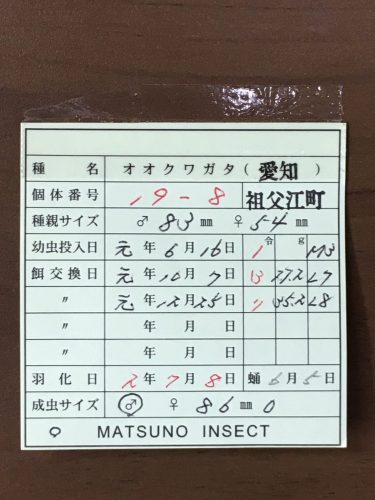 種名 オオクワガタ (愛知)
個体番号 19-8 祖父江町
種親サイズ ♂ 83 ㎜ ♀ 54 ㎜
幼虫投入日 元年6月16日 1令 g
餌交換日 元年10月7日 27.2
〃 元年12月25日 25.2
〃 年 月 日
〃 年 月 日
羽化日 2年7月8日 蛹6月5日
成虫サイズ ♂ ♀ 86㎜0
MATSUNO INSECT